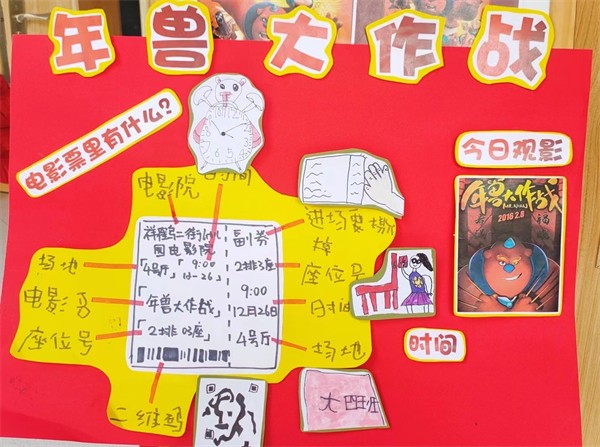 年兽大作战
电影票里有什么?
今日观影
年兽大作战
2016.2.8
时间
电影院
时间
进场要撕掉
座位号
日时间
场地
场地
电影名
座位号
二维码
祥鹤二街幼儿
园电影院
4号厅
9:00
12-26
年兽大作战
2排03座
副券
2排3座
9:00
12月26日
4号厅
大四班